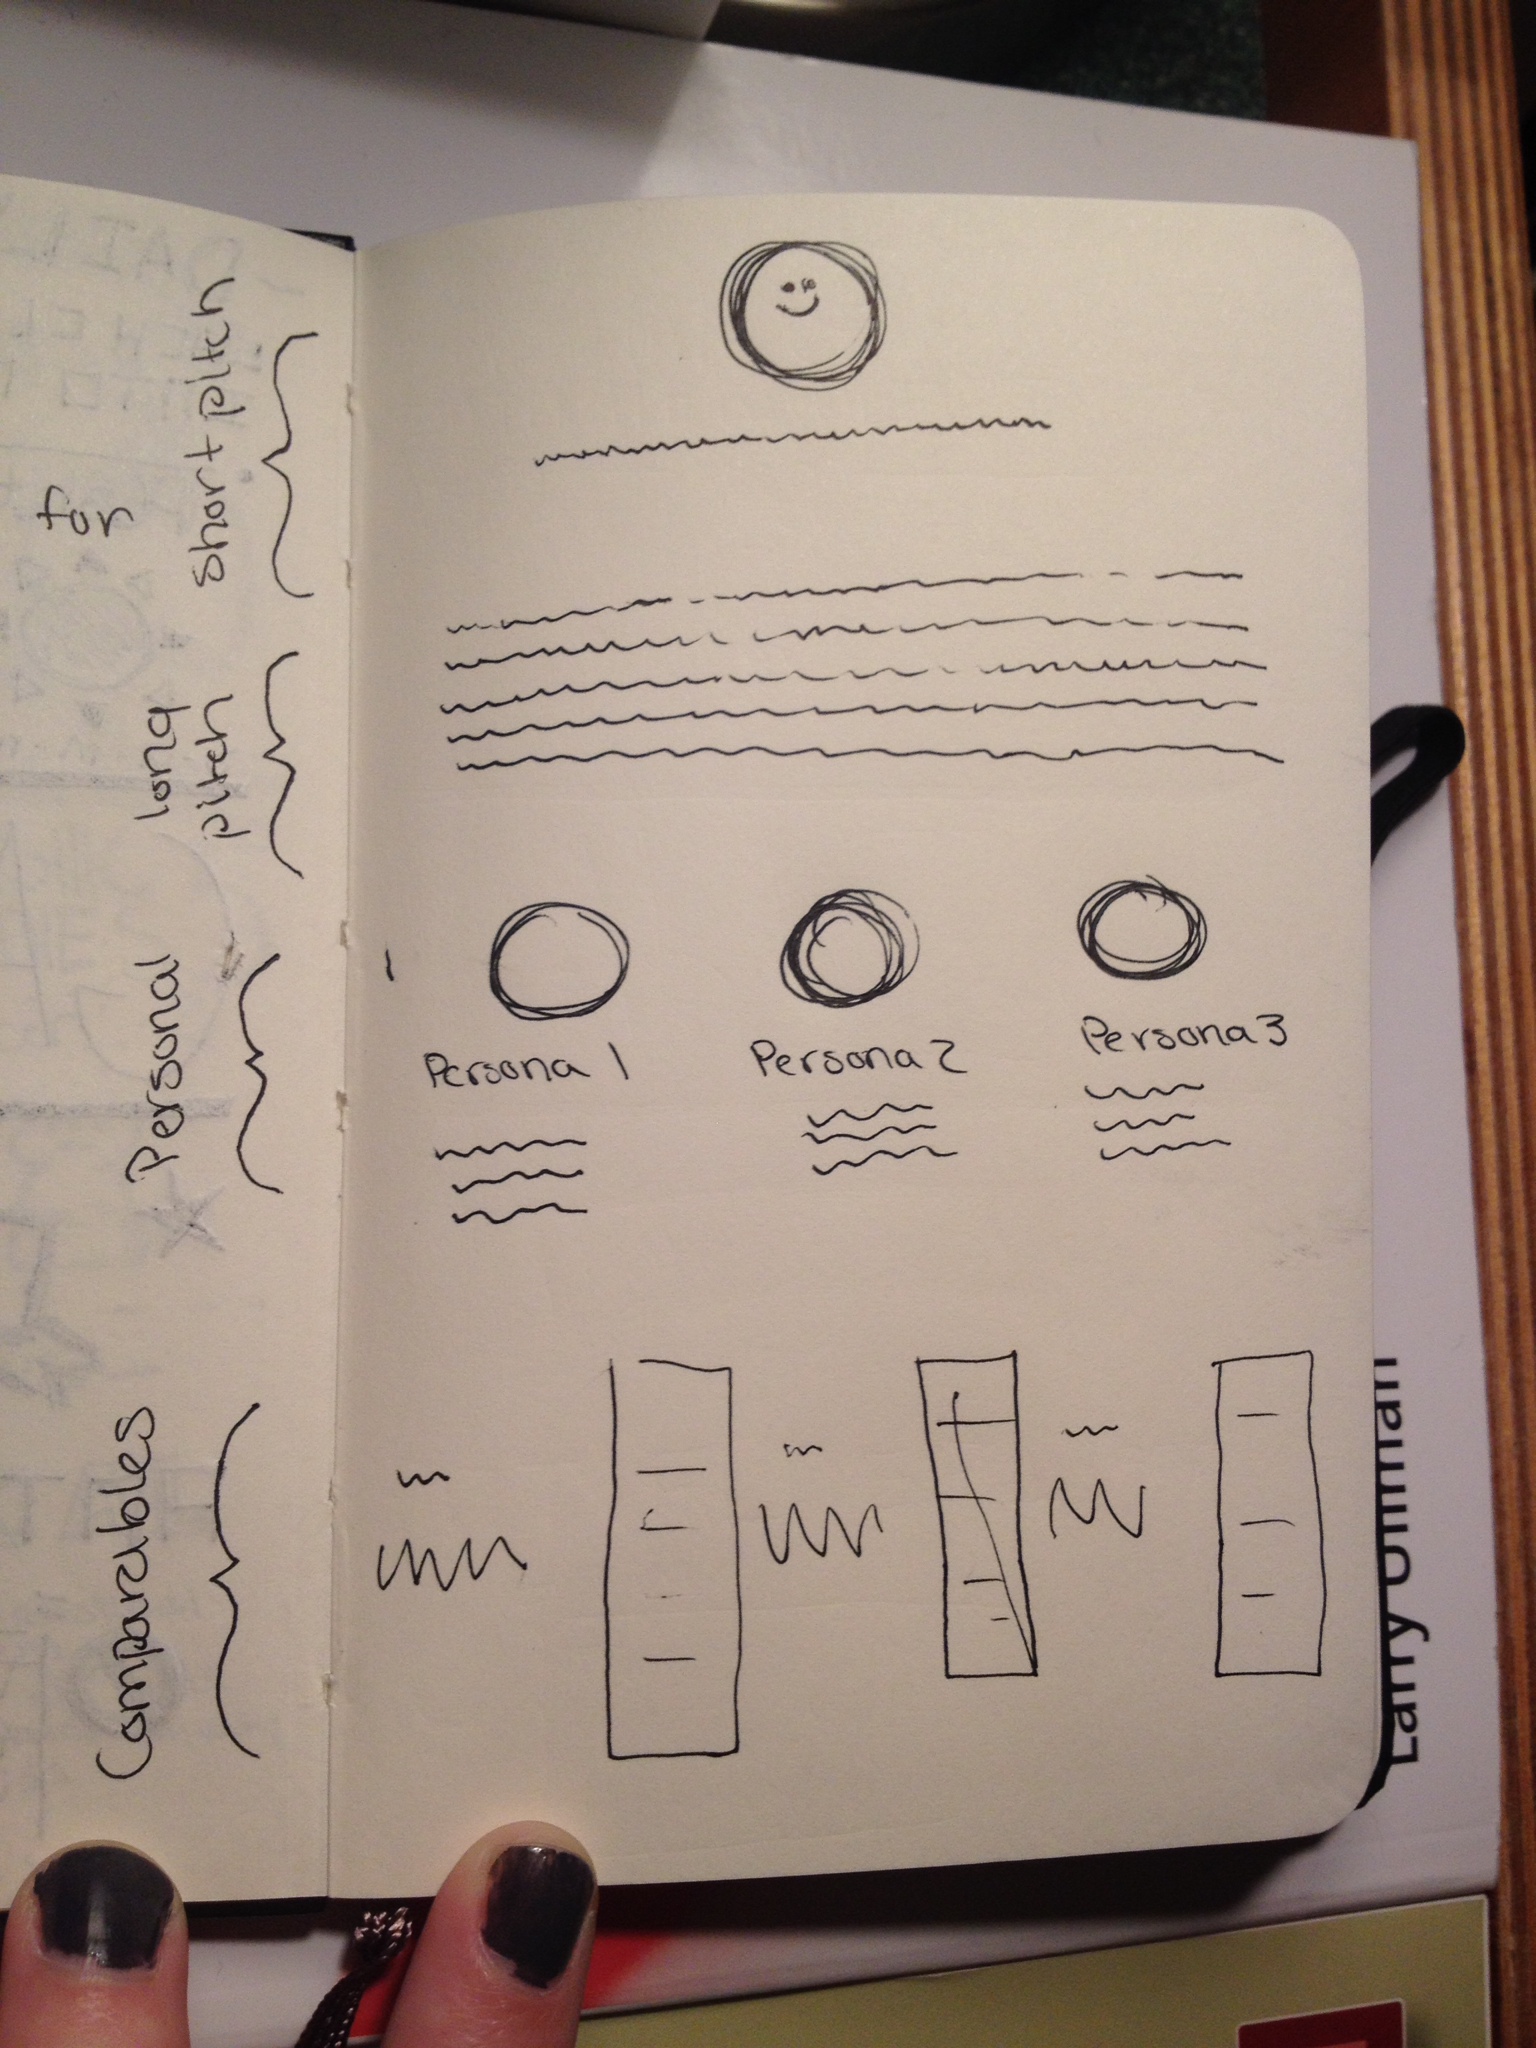 for
short pitch
long
pitch
Personal
Comparables
Persona 1
Persona 2
Persona 3
Larry